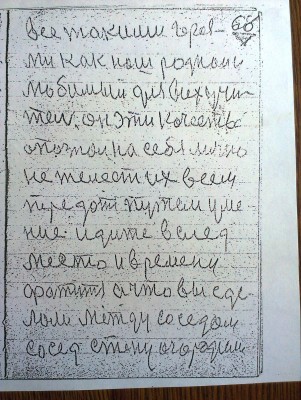 68
все такими геров-
ми как наш родной
любимый для всех учи-
тель. он эти качества
опознал на себя лично
не телести их всем
передоть путем уме
ние идите в след
место и времену
а что вы сде
лали между соседом
сосед стену огородили